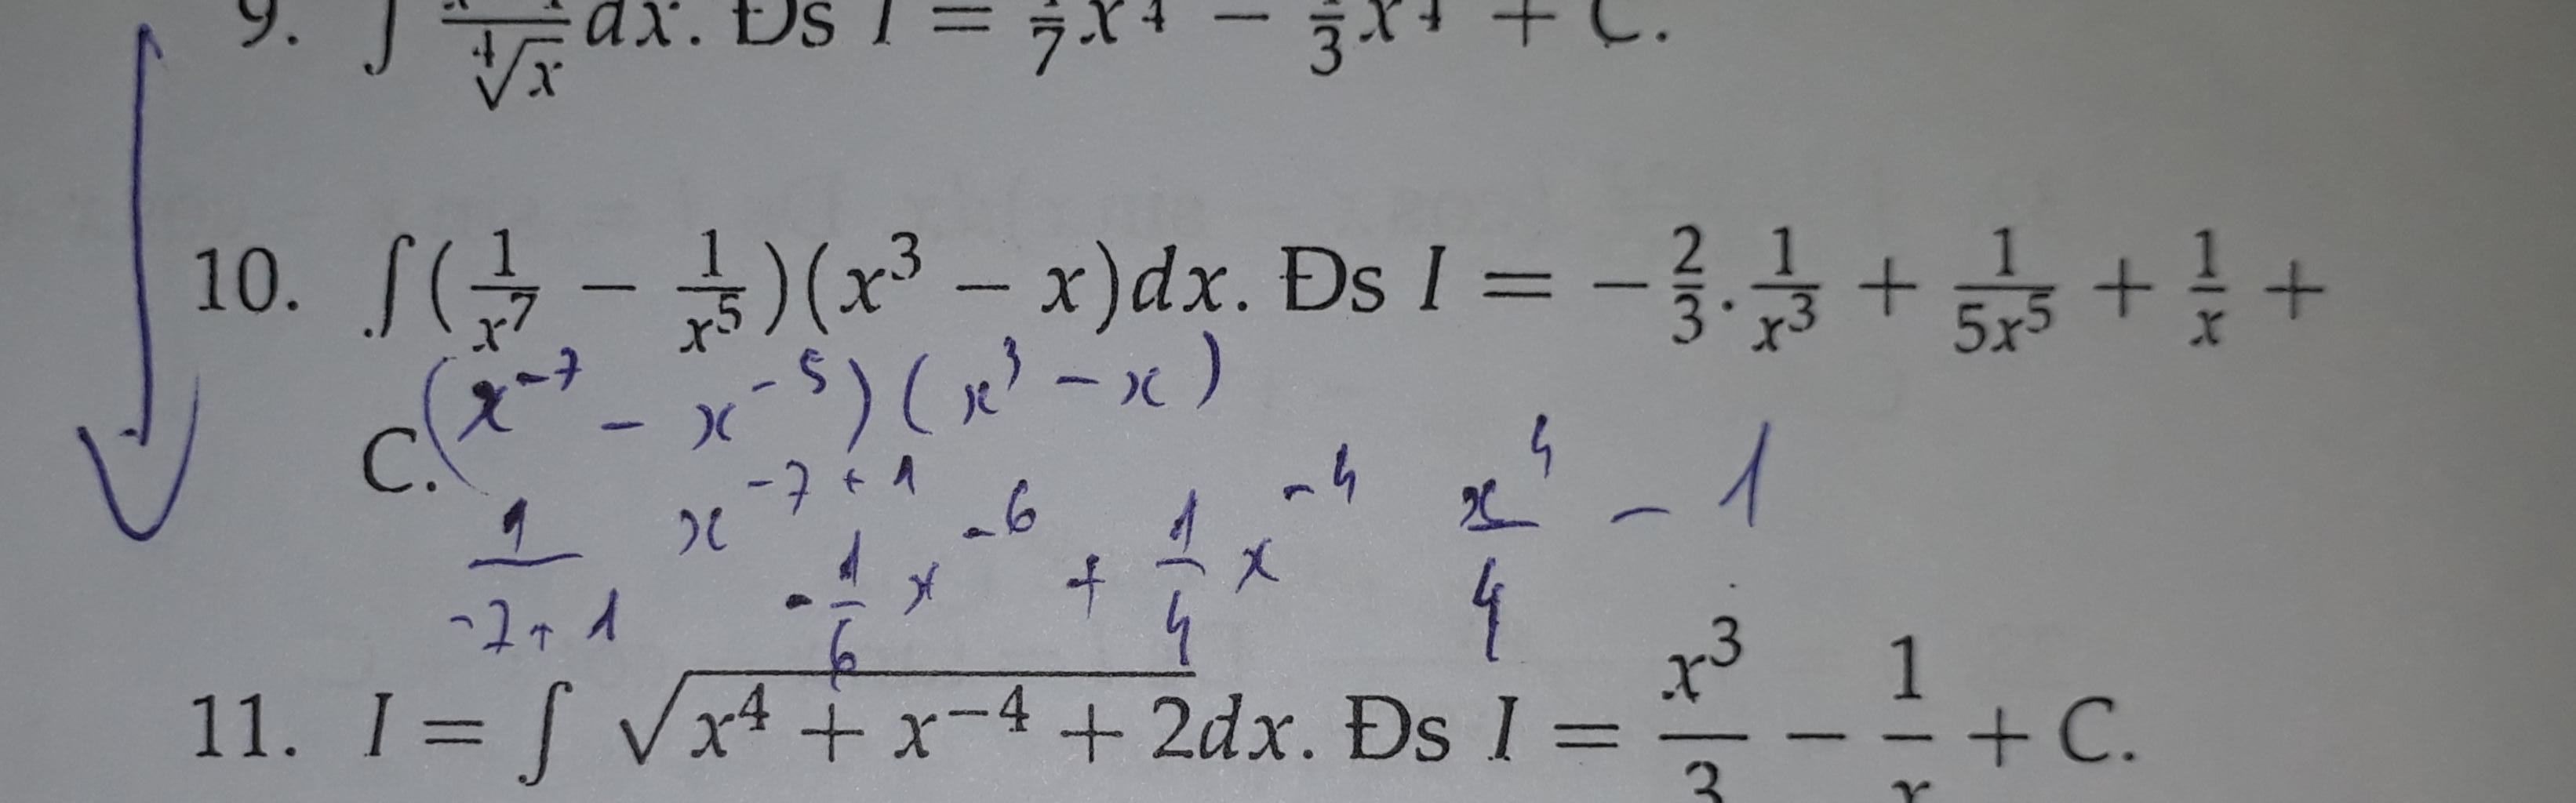 9. ∫ \frac{}{\sqrt[4]{x}}dx. Đs I = \frac{4}{7}x^{\frac{}{4}} − \frac{4}{3}x^{\frac{}{4}} + C.
10. ∫(\frac{1}{x^7} − \frac{1}{x^5})(x^3 − x)dx. Đs I = −\frac{2}{3}.\frac{1}{x^3} + \frac{1}{5x^5} + \frac{1}{x} +
(x^{-7} − x^{-5})(x^3 − x)
C.
\frac{1}{-7+1} x^{-7+1} -\frac{1}{6}x^{-6} + \frac{1}{4}x^{-4} \frac{x^4}{4} − 1
11. I = ∫ \sqrt{x^4 + x^{-4} + 2}dx. Đs I = \frac{x^3}{3} − \frac{1}{x} + C.